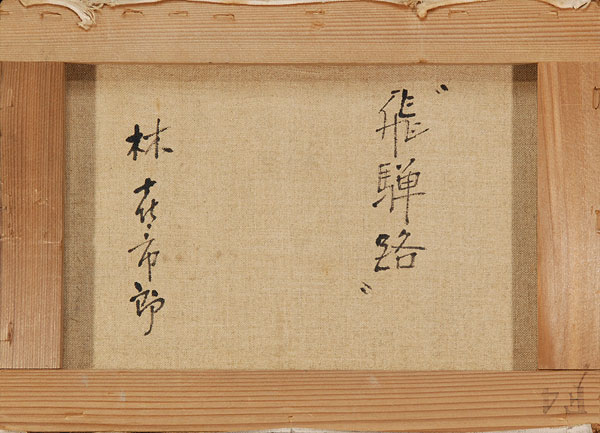 〝飛騨路〟
林喜市郎